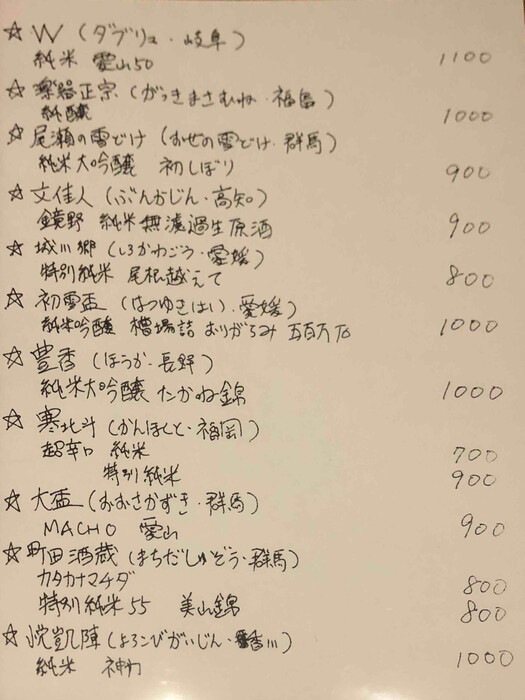 ☆ W (ダブリュ・岐阜)
純米 愛山50 1100
☆ 楽器正宗 (がっきまさむね・福島)
純醸 1000
☆ 尾瀬の雪どけ (おぜの雪どけ・群馬)
純米大吟醸 初しぼり 900
☆ 文佳人 (ぶんかじん・高知)
鏡野 純米無濾過生原酒 900
☆ 城川郷 (しろかわごう・愛媛)
特別純米 尾根越えて 800
☆ 初雪盃 (はつゆきはい・愛媛)
純米吟醸 槽場詰 おりがらみ 五百万石 1000
☆ 豊香 (ほうか・長野)
純米大吟醸 たかね錦 1000
☆ 寒北斗 (かんほくと・福岡)
超辛口 純米 700
特別純米 900
☆ 大盃 (おおさかずき・群馬)
MACHO 愛山 900
☆ 町田酒蔵 (まちだしゅぞう・群馬)
カタカナマチダ 800
特別純米55 美山錦 800
☆ 悦凱陣 (よろこびがいじん・香川)
純米 1000